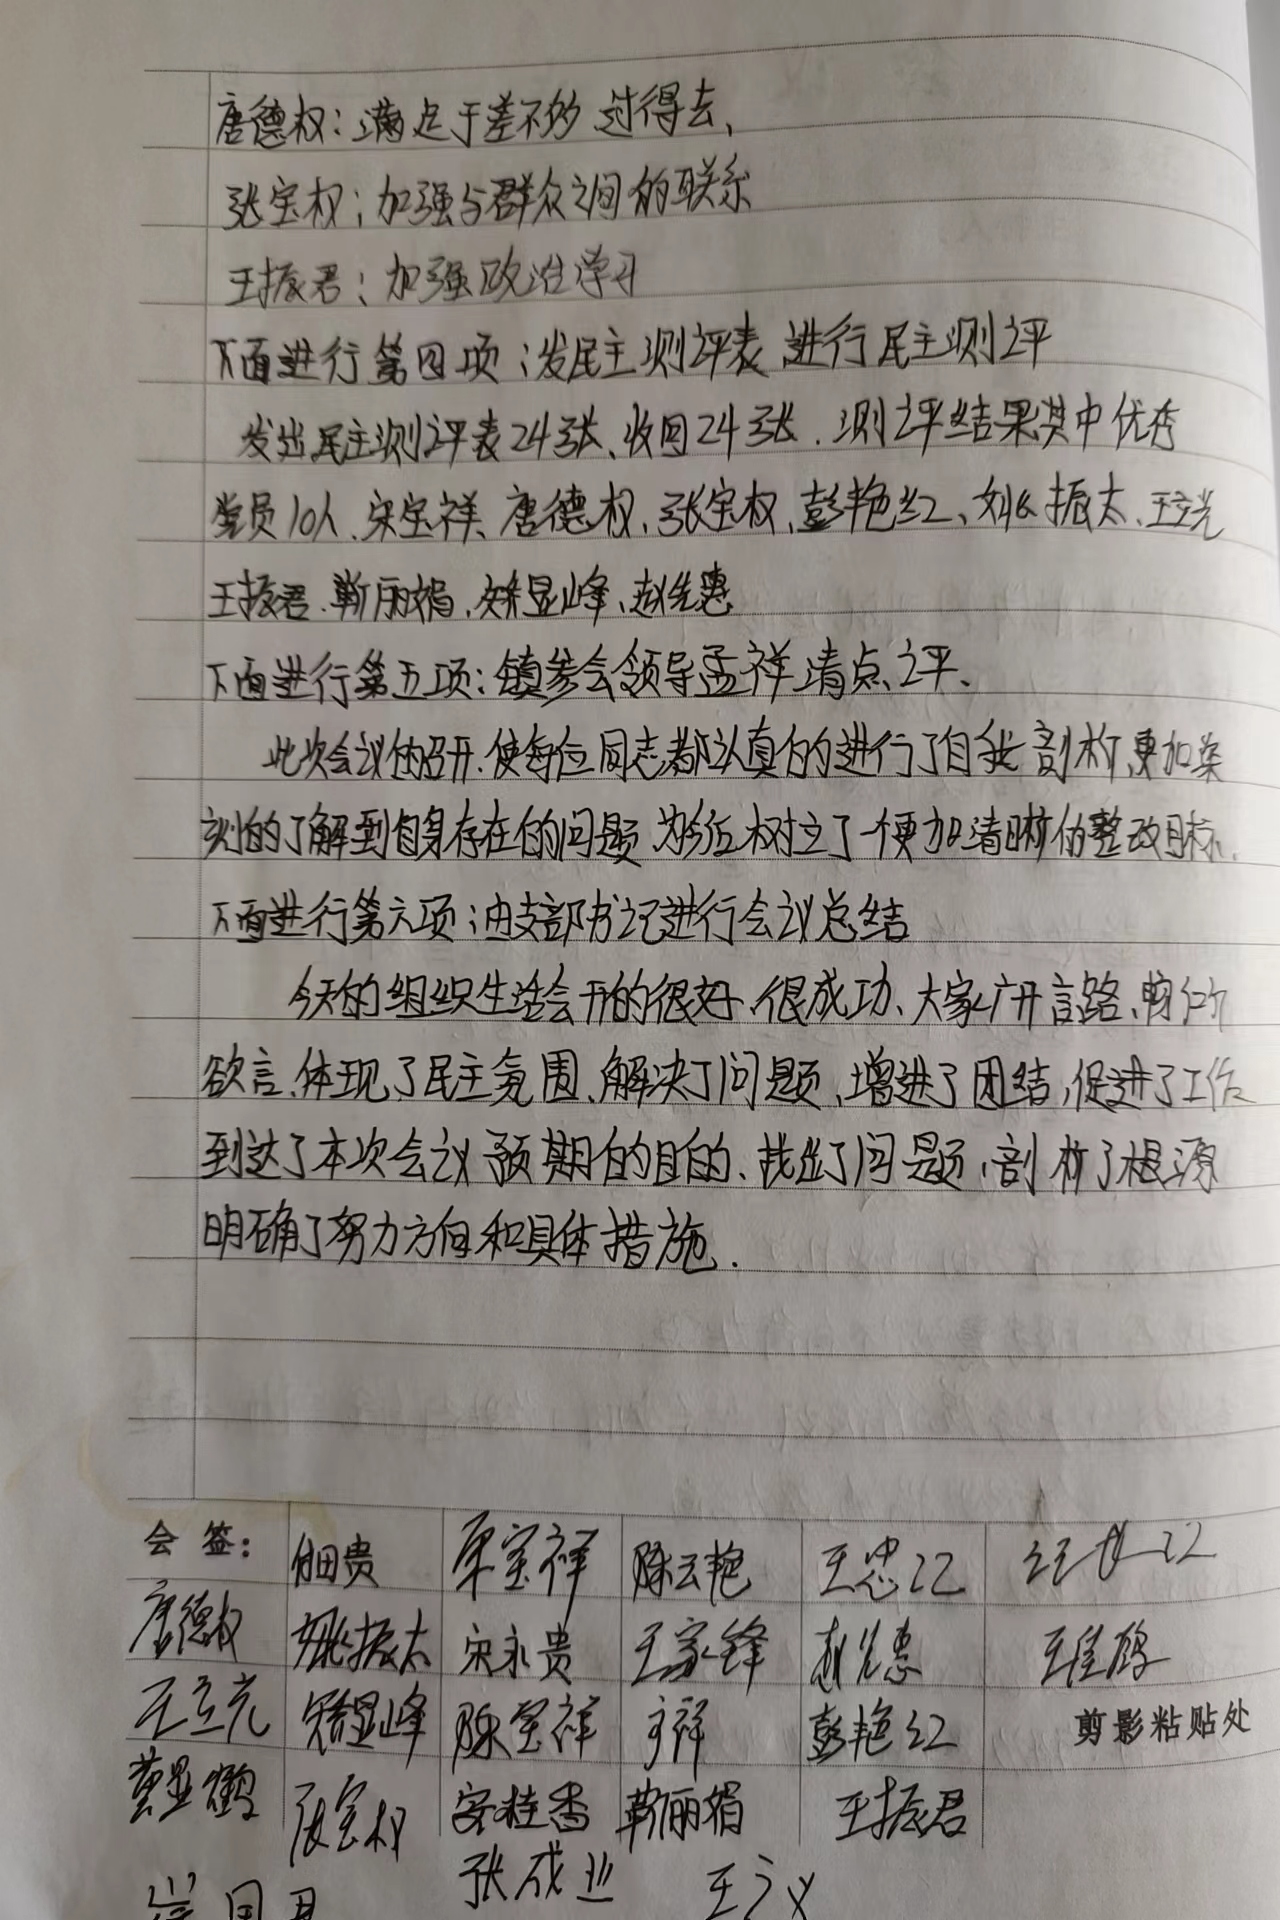 唐德权：满足于差不多 过得去、
张宝权：加强与群众之间的联系
王振君：加强政治学习
下面进行第四项：发民主测评表 进行民主测评
发出民主测评表24张、收回24张．测评结果其中优秀
党员10人、宋宝祥、唐德权、张宝权、彭艳红、姚振太、王立光
王振君、靳丽娟、姚显峰、赵先惠
下面进行第五项：镇参会领导孟祥清点评、
此次会议的召开、使每位同志都认真的进行了自我剖析、更加深
刻的了解到自身存在的问题 为今后树立了一个更加清晰的整改目标、
下面进行第六项：由支部书记进行会议总结
今天的组织生活会开的很好、很成功、大家广开言路、畅所
欲言、体现了民主氛围、解决了问题、增进了团结，促进了工作
到达了本次会议预期的目的、找出了问题、剖析了根源
明确了努力方向和具体措施．
会 签： 田贵 宋宝祥 陈云艳 王忠江
唐德权 姚振太 宋永贵 王家锋 赵先惠 王佳鹤
王立光 姚显峰 陈宝祥 彭艳红 剪影粘贴处
张宝权 安桂香 靳丽娟 王振君
张成 王义